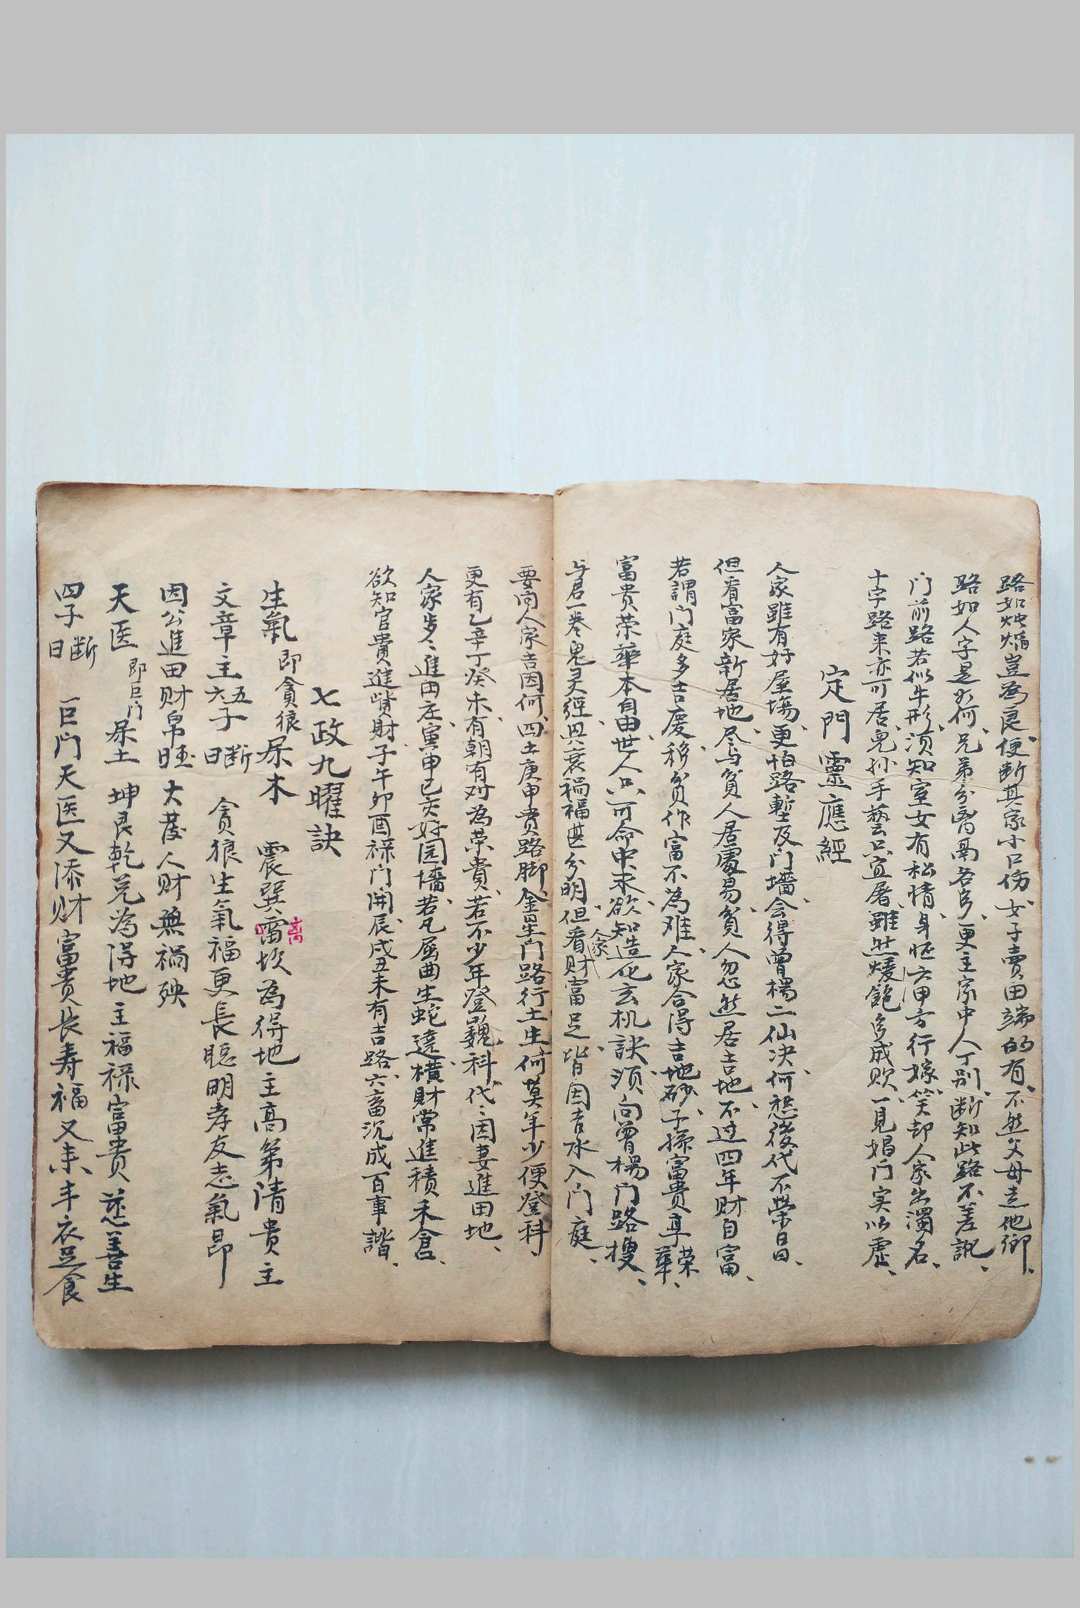 路如火焰豈為良、便断其家小口伤、女子賣田端的有、不然父母走他鄉、
路如人字是如何、兄弟分門各戶、更主家中人丁別、断知此路不差訛、
门前路若似牛形、须知室女有私情、身怀六甲方行嫁、笑却人家出濁名、
十字路来亦可居、兒孙手藝只宜屠、雖然煖飽多成败、一見娼门实以虚、
定門靈應經
人家雖有好屋塲、更怕路塹及门墻、会得曾楊二仙决、何愁後代不榮昌、
但看富家新居地、尽与貧人居處易、貧人忽然居吉地、不过四年財自富、
若謂门庭多吉慶、移貧作富不為难、人家合得吉地砂、子孫富貴享榮華、
富貴荣華本自由、世人只可命中求、欲知造化玄机訣、须向曾楊门路搜、
与君一卷鬼灵經、興衰禍福甚分明、但看人家財富足、皆因吉水入门庭、
要问人家吉因何、四土庚申贵路脚、金星门路行土生、何莫年少便登科
更有乙辛丁癸未、有朝有对為荣貴、若不少年登巍科、代代因妻進田地、
人家步步進田庄、寅申巳亥好园墻、若凡屈曲生蛇遶、横財常進積禾倉、
欲知官貴進賢財、子午卯酉禄门開、辰戌丑未有吉路、六畜沉成百事諧、
七政九曜訣
生氣即貪狼屬木 震巽離坎為得地主高第清貴主
文章主五六子日断 貪狼生氣福更長聰明孝友志氣昂
因公進田财帛旺大發人财無禍殃
天医即巨门屬土 坤艮乾兑為得地主福禄富貴慈善生
四子日断 巨门天医又添财富貴长寿福又来丰衣足食